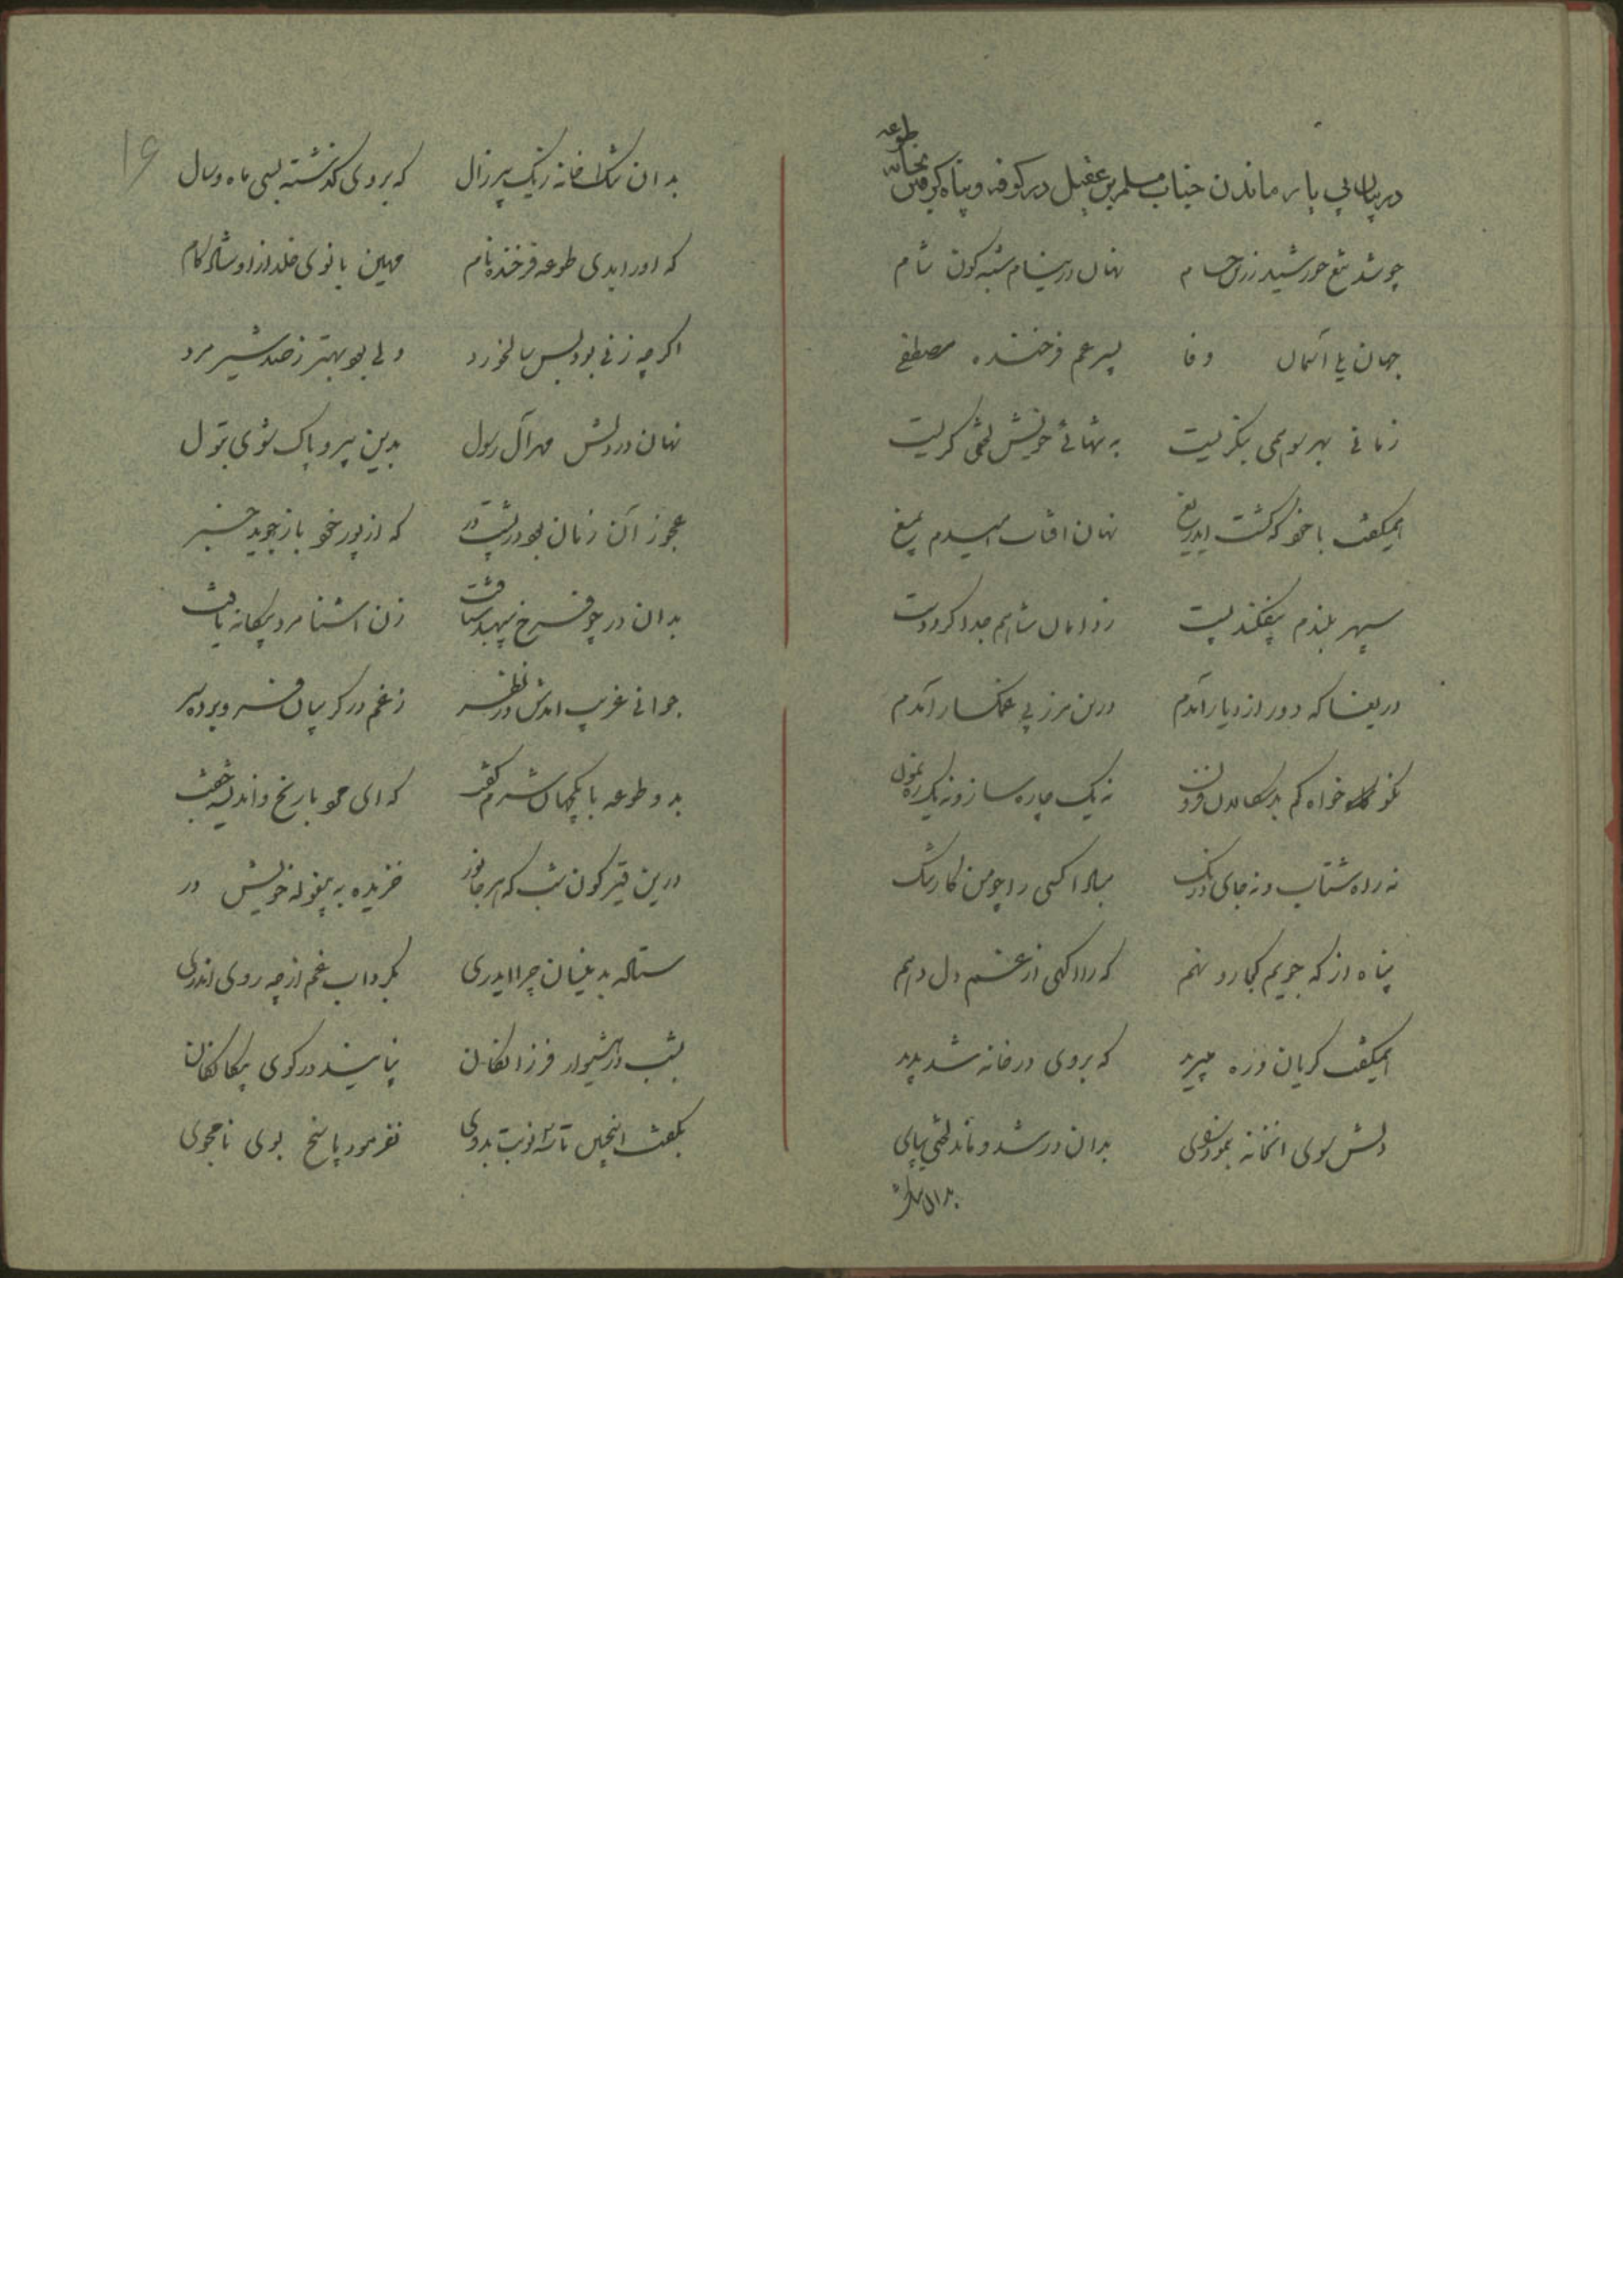 در بیان بی یار ماندن جناب مسلم بن عقیل در کوفه و پناه گرفتن بخانه طوعه
چو شد تیغ خورشید زرین حسام نهان در نیام شبه کون شام
جهان یا آسمان وفا پسر عم فرخنده مصطفی
زمانی بهر سو همی بنگریست به تنهائی خویش لختی گریست
همیگفت با خود که گشت ایدریغ نهان افتاب امیدم بمیغ
سپهر بلندم بیفکند پست ز دامان شاهم جدا کرد دست
دریغا که دور از دیار آمدم درین مرز بی غمگسار آمدم
نکو خواه کم بدسکالان فزون نه یک چاره ساز و نه یک رهنمون
نه راه شتاب و نه جای درنک مبادا کسی را چو من کار تنک
پناه از که جویم کجا رو نهم که را آگهی از غم دل دهم
همیگفت گریان و ره میبرید که بروی در خانه شد پدید
دلش سوی انخانه بنمود رای بدان در شد و ماند لختی بپای
بدان
بدان تنک خانه ز یک پیر زال که بروی گذشته بسی ماه و سال
که او را بدی طوعه فرخنده نام مهین بانوی خلد از او شادکام
اگر چه زنی بود بس سالخورد ولی بود بهتر ز صد شیر مرد
نهان در دلش مهر آل رسول بدین پیرو پاک شوی بتول
عجوز آن زمان بود در پشت در که از پور خود باز جوید خبر
بدان در چو فرخ سپهبد شتافت زن اشنا مرد بیگانه یافت
جوانی غریب امدش در نظر ز غم در گریبان فرو برده سر
بدو طوعه با یکجهان شرم گفت که ای با رنج و اندیشه جفت
درین قیرگون شب که هر جانور خزیده به بیغوله خویش در
ستاده بدینسان چرا ایدری بگرداب غم از چه روی اندری
بشب در هشیوار فرزانگان نپایند در کوی بیگانگان
بگفت اینچنین تا سه نوبت بدوی نفرمود پاسخ بوی نامجوی
۱۶